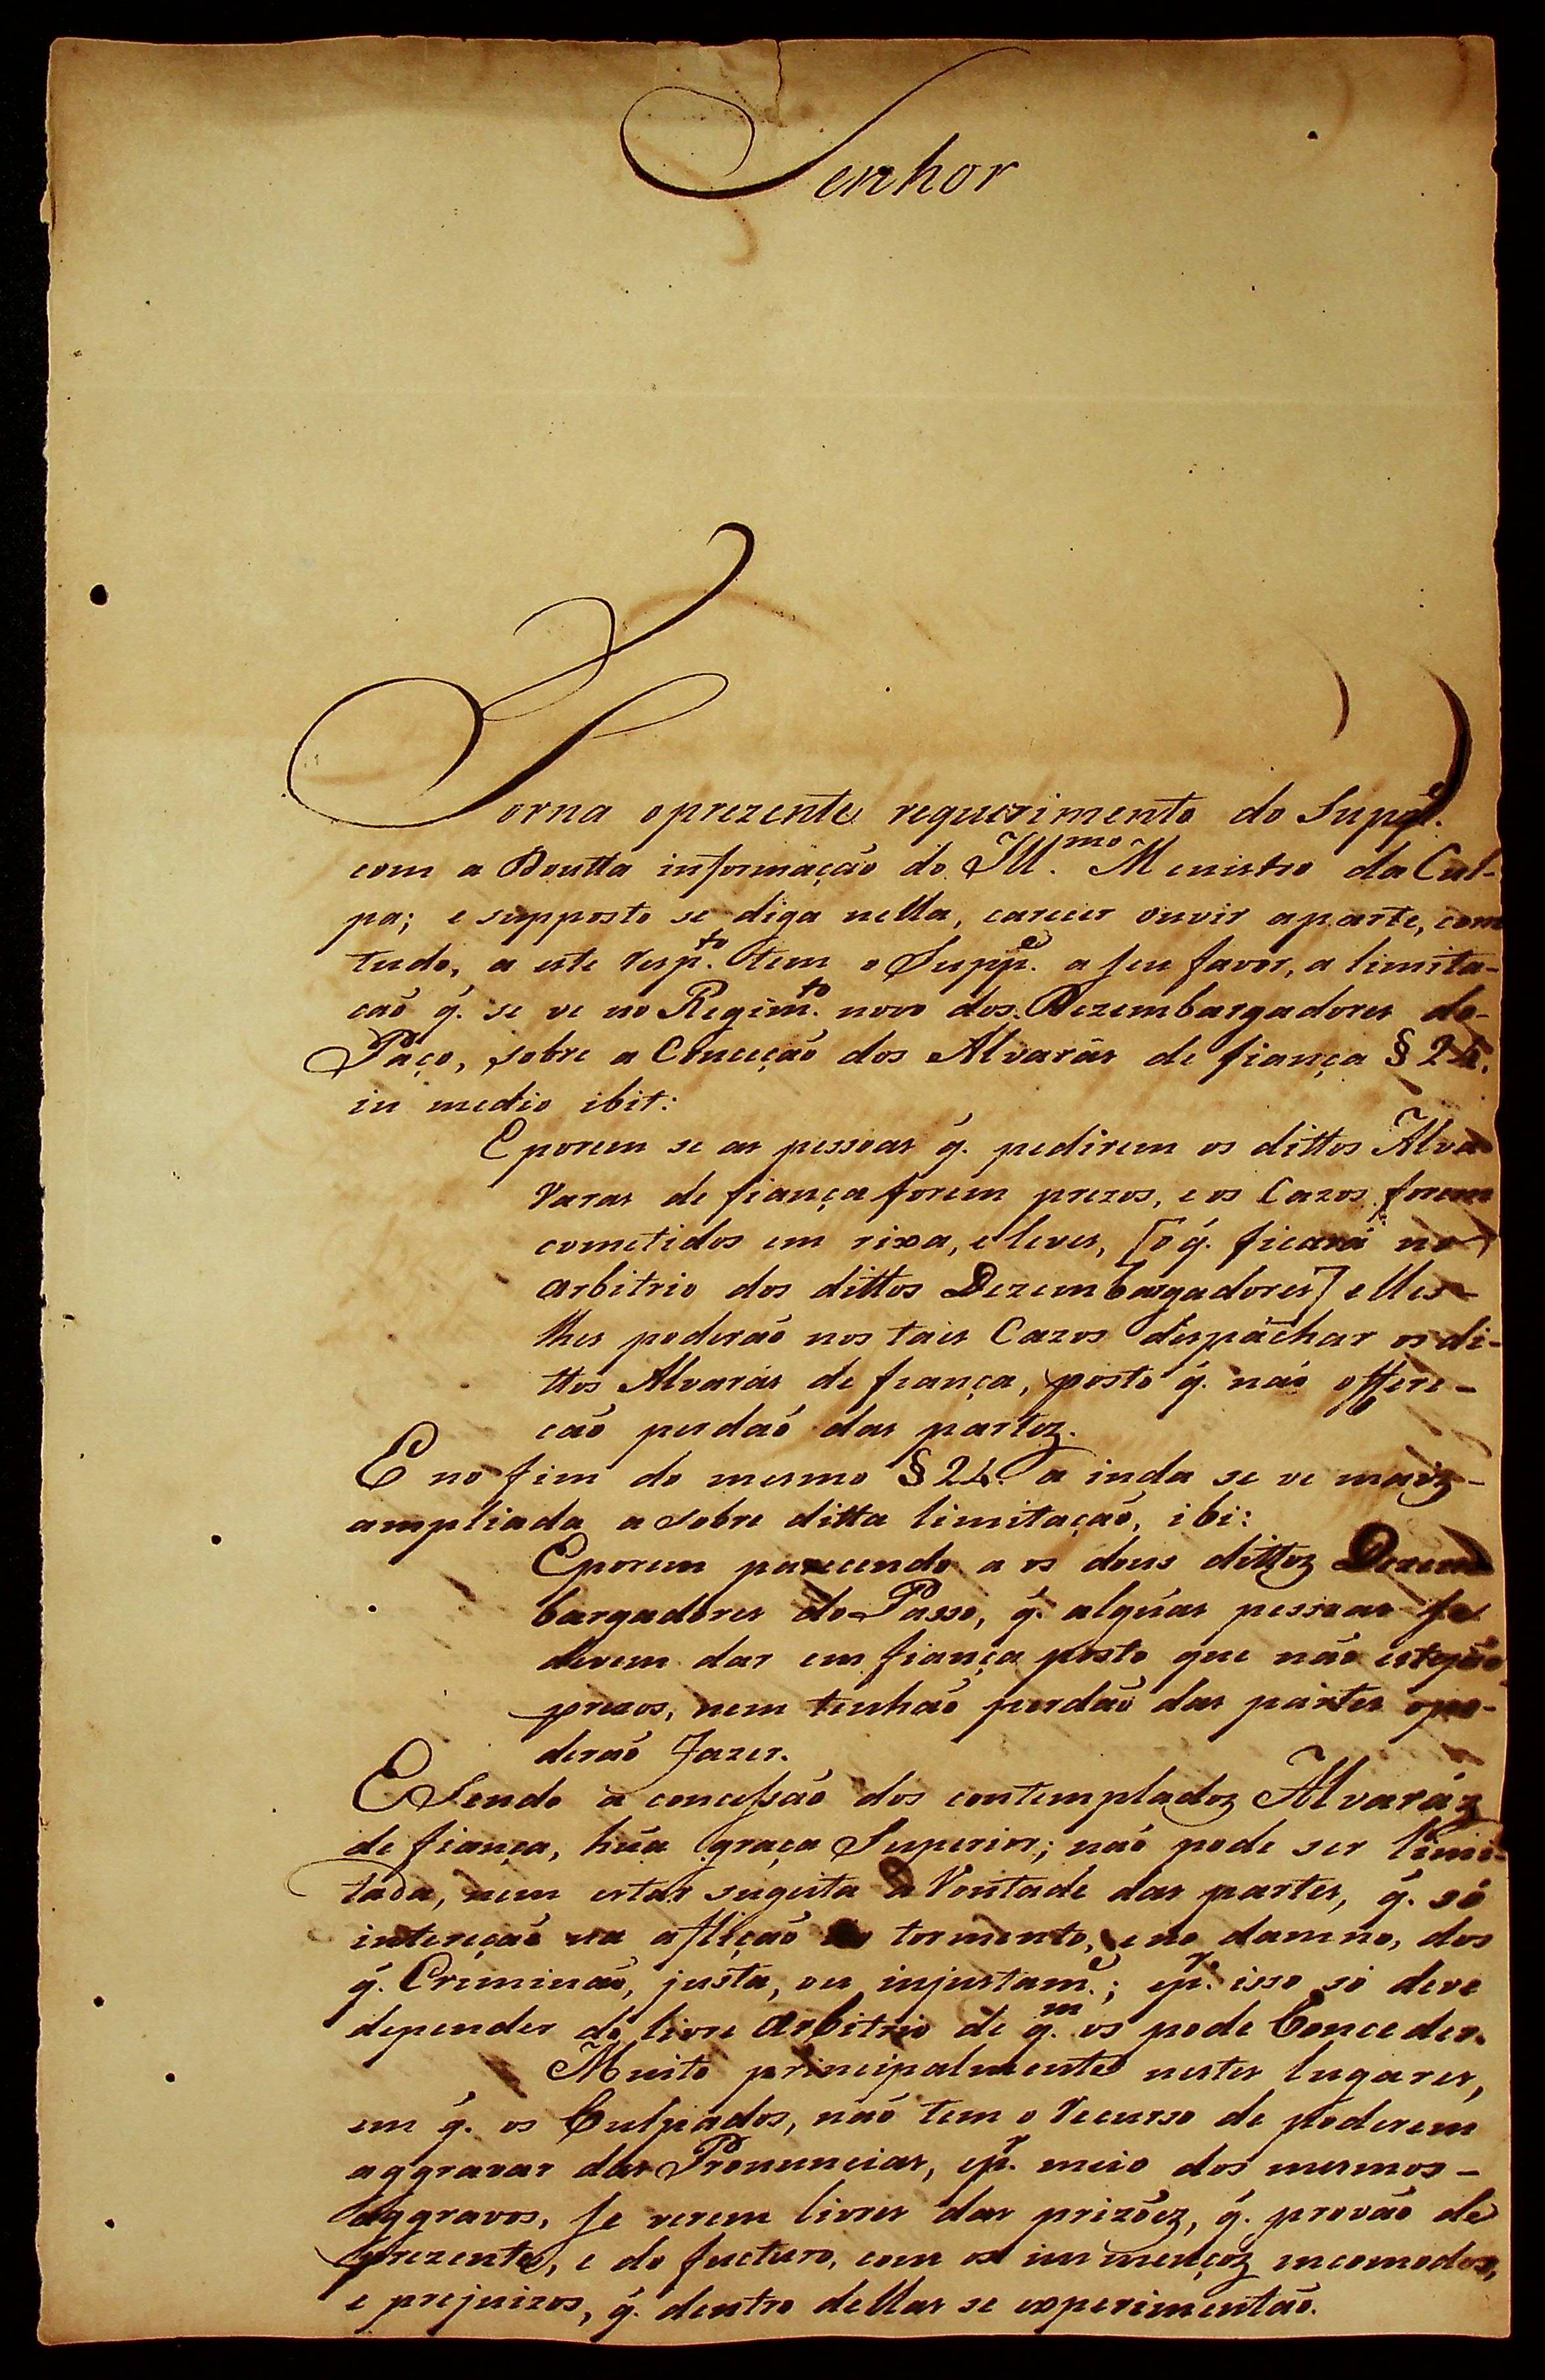 Senhor
Torna oprezente requerimento do Supp.e
com a Doutta informação do Ill.mo Menistro da Cul-
pa; e supposto se diga nella, carecer ouvir aparte, com
tudo, a este resp.to tem o Supp.e a seu favor, a limita-
caõ q. se ve no Regim.to novo dos Dezembargadores do-
Paço, sobre a Conceçaõ dos Alvarás de fiança § 24.
in medio ibit:
Eporem se as pessoas q. pedirem os dittos Alva
varas de fiança forem prezos, e os Cazos forem
cometidos em rixa, e leves, [o q. ficará no
arbitrio dos dittos Dezembargadores] elles-
lhes poderáo nos tais Cazos despáchar os di-
ttos Alvarás de fiança, posto q. náo offere-
caõ perdaõ das partez.
E no fim do mesmo § 24. a inda se ve maiz-
ampliada a sobre ditta limitaçaõ, ibi:
Eporem parecendo a os dous dittoz Dezem
bargadores do Passo, q. algúas pessoas se
devem dar em fiança posto que náo estejáo
prezos, nem tenhaõ perdáo das partes opo-
deraõ fazer.
E Sendo a concessáo dos contempladoz Alvaráz
de fiança, húa graça Superior; náo pode ser limi-
tada, nem estar sugeita a Vontade das partes, q. só
intereçaõ na afliçaõ tormento, eno damno, dos
q. Crimináo, justa, ou injustam.e; ep.r isso só deve
depender do livre arbitrio de q.m os pode Conceder.
Muito principalmente nestes lugares,
em q. os Culpados, naõ tem o recurso de poderem
aggravar das Pronuncias, ep.r meio dos mesmos-
aggravos, se verem livres das prizóez, q. prováo de
prezente, e do fucturo, com os immençoz incomodos,
e prejuizos, q. dentro dellas se experimentáo.